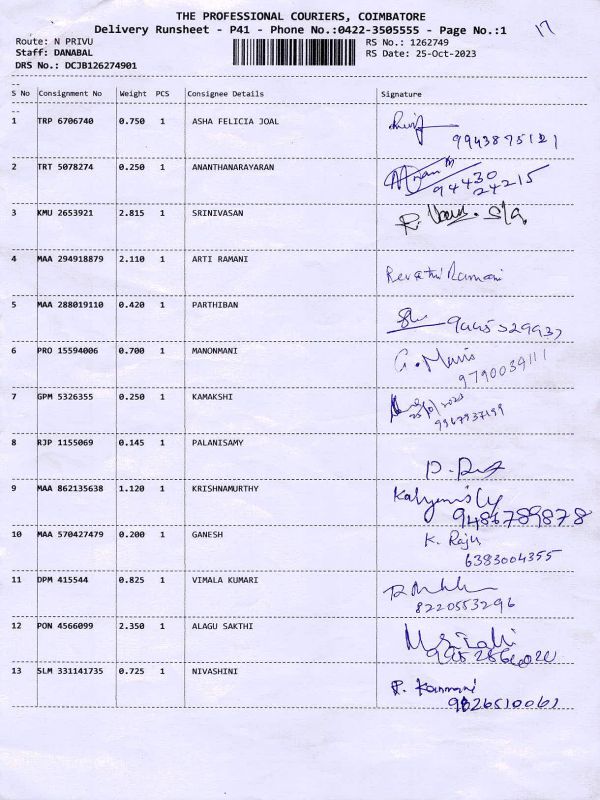 THE PROFESSIONAL COURIERS, COIMBATORE
17
Delivery Runsheet - P41 - Phone No.:0422-3505555 - Page No.:1
Route: N PRIVU
RS No.: 1262749
Staff: DANABAL
RS Date: 25-Oct-2023
DRS No.: DCJB126274901
S No Consignment No Weight PCS Consignee Details Signature
1 TRP 6706740 0.750 1 ASHA FELICIA JOAL
9943875121
2 TRT 5078274 0.250 1 ANANTHANARAYARAN
94430
24215
3 KMU 2653921 2.815 1 SRINIVASAN
4 MAA 294918879 2.110 1 ARTI RAMANI
Revathi Ramani
5 MAA 288019110 0.420 1 PARTHIBAN
6 PRO 15594006 0.700 1 MANONMANI
9790039111
7 GPM 5326355 0.250 1 KAMAKSHI
8 RJP 1155069 0.145 1 PALANISAMY
9 MAA 862135638 1.120 1 KRISHNAMURTHY
9486789878
10 MAA 570427479 0.200 1 GANESH K. Raju
6383004355
11 DPM 415544 0.825 1 VIMALA KUMARI
8220553296
12 PON 4566099 2.350 1 ALAGU SAKTHI
13 SLM 331141735 0.725 1 NIVASHINI
9826510061